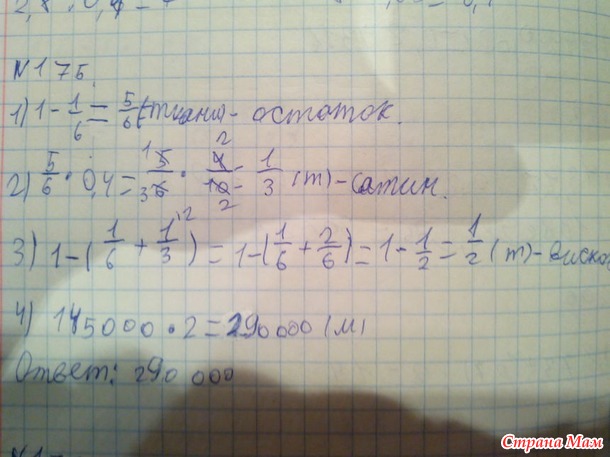 N 175.
1) 1 - 1/6 = 5/6 (ткани) - остаток.
2) 5/6 · 0,4 = 5/6 · 4/10 = 1/3 (т) - сатин.
3) 1 - (1/6 + 1/3) = 1 - (1/6 + 2/6) = 1 - 1/2 = 1/2 (т) - виско
4) 145000 · 2 = 290000 (м)
Ответ: 290 000
Страна Мам